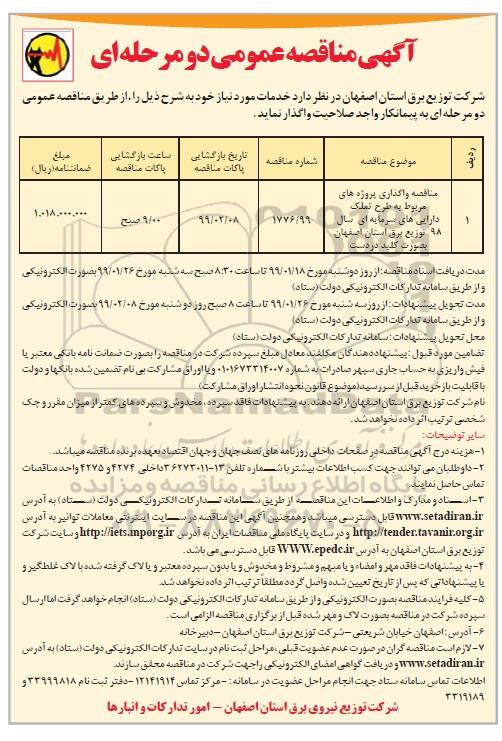 آگهی مناقصه عمومی دو مرحله ای
شرکت توزیع برق استان اصفهان در نظر دارد خدمات مورد نیاز خود به شرح ذیل را، از طریق مناقصه عمومی
دو مرحله ای به پیمانکار واجد صلاحیت واگذار نماید.
ردیف
موضوع مناقصه
شماره مناقصه
تاریخ بازگشایی پاکات مناقصه
ساعت بازگشایی پاکات مناقصه
مبلغ ضمانتنامه(ریال)
۱
مناقصه واگذاری پروژه های
مربوط به طرح تملک
دارایی های سرمایه ای سال
۹۸ توزیع برق استان اصفهان
بصورت کلید دردست
۱۷۷۶/۹۹
۹۹/۰۲/۰۸
۹/۰۰ صبح
۱.۰۱۸.۰۰۰.۰۰۰
مدت دریافت اسناد مناقصه: از روز دوشنبه مورخ ۹۹/۰۱/۱۸ تا ساعت ۸:۳۰ صبح سه شنبه مورخ ۹۹/۰۱/۲۶ بصورت الکترونیکی
و از طریق سامانه تدارکات الکترونیکی دولت (ستاد)
مدت تحویل پیشنهادات: از روز سه شنبه مورخ ۹۹/۰۱/۲۶ تا ساعت ۸ صبح روز دوشنبه مورخ ۹۹/۰۲/۰۸ بصورت الکترونیکی
و از طریق سامانه تدارکات الکترونیکی دولت (ستاد)
محل تحویل پیشنهادات: سامانه تدارکات الکترونیکی دولت (ستاد)
تضامین مورد قبول: پیشنهاددهندگان مکلفند معادل مبلغ سپرده شرکت در مناقصه را بصورت ضمانت نامه بانکی معتبر یا
فیش واریزی به حساب جاری سپهر صادرات به شماره ۰۱۰۱۶۷۳۳۱۴۰۰۷ و یا اوراق مشارکت بی نام تضمین شده بانکها و دولت
با قابلیت بازخرید قبل از سررسید(موضوع قانون نحوه انتشار اوراق مشارکت)
نام شرکت توزیع برق استان اصفهان ارائه دهند. به پیشنهادات فاقد سپرده، مخدوش و سپرده های کمتر از میزان مقرر و چک
شخصی ترتیب اثر داده نخواهد شد.
سایر توضیحات:
۱-هزینه درج آگهی مناقصه در صفحات داخلی روزنامه های نصف جهان و جهان اقتصاد بعهده برنده مناقصه میباشد.
۲-داوطلبان می توانند جهت کسب اطلاعات بیشتر با شماره تلفن ۱۳-۳۶۲۷۳۰۱۱ داخلی ۴۲۷۴ و ۴۲۷۵ واحد مناقصات
تماس حاصل نمایند.
۳-اسناد و مدارک و اطلاعات این مناقصه از طریق سامانه تدارکات الکترونیکی دولت (ستاد) به آدرس
www.setadiran.ir قابل دسترسی میباشد و همچنین آگهی این مناقصه در سایت اینترنتی معاملات توانیر به آدرس
http://tender.tavanir.org.ir و در سایت پایگاه ملی مناقصات ایران به آدرس http://iets.mporg.ir و سایت شرکت
توزیع برق استان اصفهان به آدرس WWW.epedc.ir قابل دسترسی می باشد.
۴-به پیشنهادات فاقد مهر و امضاء و یا مبهم و مشروط و مخدوش و یا بدون سپرده معتبر و یا لاک گرفته شده با لاک غلط گیر و
یا پیشنهاداتی که پس از تاریخ تعیین شده واصل گردد مطلقا ترتیب اثر داده نخواهد شد.
۵-کلیه فرایند مناقصه بصورت الکترونیکی و از طریق سامانه تدارکات الکترونیکی دولت (ستاد) انجام خواهد گرفت اما ارسال
سپرده شرکت در مناقصه بصورت لاک و مهر شده قبل از برگزاری مناقصه الزامی است.
۶-آدرس: اصفهان خیابان شریعتی -شرکت توزیع برق استان اصفهان -دبیرخانه
۷-لازم است مناقصه گران در صورت عدم عضویت قبلی، مراحل ثبت نام در سایت تدارکات الکترونیکی دولت (ستاد) به آدرس
www.setadiran.ir و دریافت گواهی امضای الکترونیکی را جهت شرکت در مناقصه محقق سازند.
اطلاعات تماس سامانه ستاد جهت انجام مراحل عضویت در سامانه: -مرکز تماس ۱۲۱۴۱۹۱۴-دفتر ثبت نام ۳۳۹۹۹۸۱۸ و
۳۳۱۹۱۸۹
شرکت توزیع نیروی برق استان اصفهان - امور تدارکات و انبارها